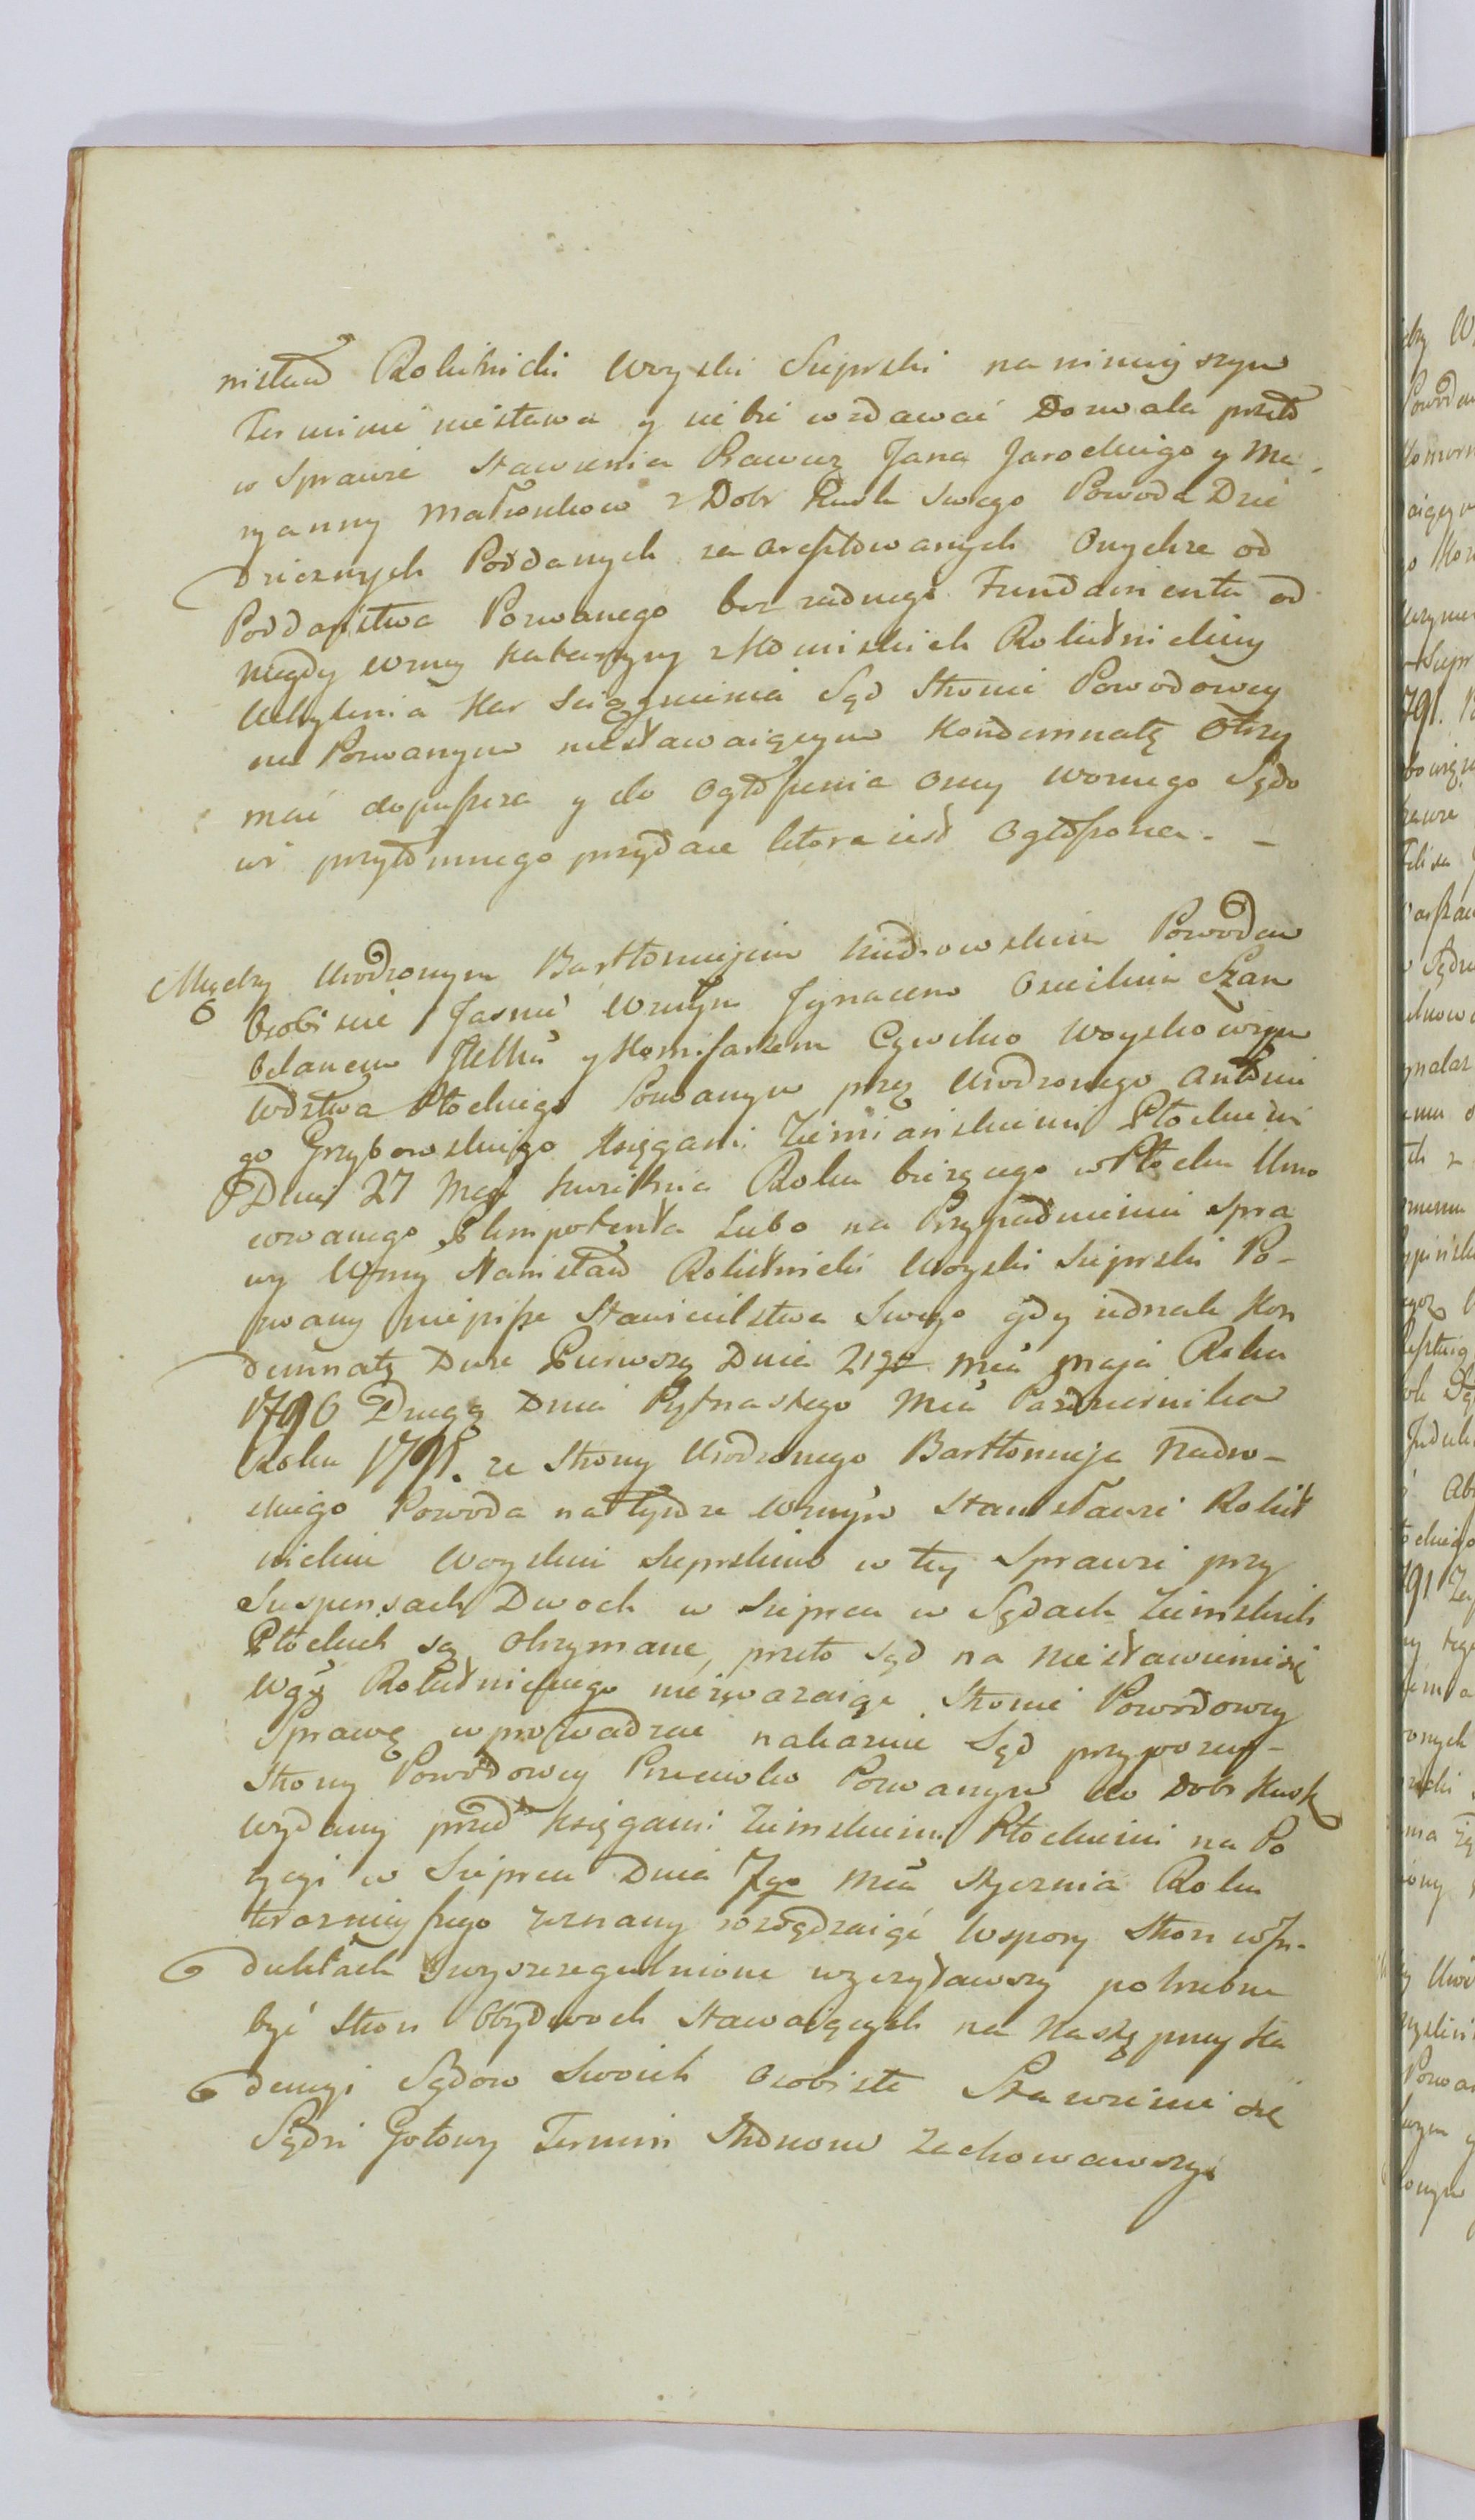 nisław Rokitnicki Woyski Sieprski na ninieyszym
Terminie niestawa y siebie wzdawać Dozwala przeto
w Sprawie Stawienia Jana Jarockiego y Ma-
ryanny Małżonkow z Dobr Kusk swego Powoda Dzie
dzicznych Poddanych zaaresztowanych Onychże od
Poddaństwa Pozwanego bez żadnego Fundamentu od
niegdy Wzney Katarzyny z Rokitnickiey
Uchylenia Kar Sciągnienia Sąd Stronie Powodowey
na Pozwanym niestawaiącym Kondemnatę Otrzy
mać dopuszcza y do Ogłoszenia Oney Woznego Sądo
wi przytomnego przydaie ktora iest Ogłoszona. -
Między Urodzonym Bartłomieiem Powodem
Osobiscie Jasnie Wznym Jgnacem Szam
belanem y Komisarzem Cywilno Woyskowym
Wdztwa Płockiego Pozwanym przez Urodzonego Antonie
go Grzybowskiego Xsięgami Ziemiańskiemi Płockiemi
Dnia 27 Mca Kwietnia Roku bieżącego w Płocku Umo
cowanego Plenipotenta Lubo na Przypadnieniu Spra
wy Wzny Stanisław Rokitnicki Woyski Sieprski Po-
zwany niepisze Stawicielstwa Swego gdy iednak Kon
demnaty Dwie Pierwszą Dnia 21go Mca Maja Roku
1790 Drugą Dnia Piętnastego Mca Pazdziernika
Roku 1791. ze Strony Urodzonego Bartłomieja
skiego Powoda na tymże Wznym Stanisławie Rokit
nickim Woyskim Sieprskim w tey Sprawie przy
Suspensach Dwoch w Sieprcu w Sądach Ziemskich
Płockich są Otrzymane, przeto Sąd na Niestawienie się
Wgo Rokitnickiego nieuważaiąc Stronie Powodowey
Sprawę wprowadzić nakazuie Sąd przypozew-
Strony Powodowey Przeciwko Pozwanym do Dobr Kusk
wydany przed Xsięgami Ziemskiemi Płockiemi na Po
zycyi w Sieprcu Dnia 7go Mca Stycznia Roku
teraznieyszego zeznany rozsądzaiąc Wspory Stron w Jn-
duktach wyszczegulnione wyczytawszy potrzebne
być Stron Obydwoch Stawaiących na Następney Ka
dencyi Sądow Swoich Osobiste Stawienie się
Sądzi Gotowy Termin Stronom Zachowawszy.